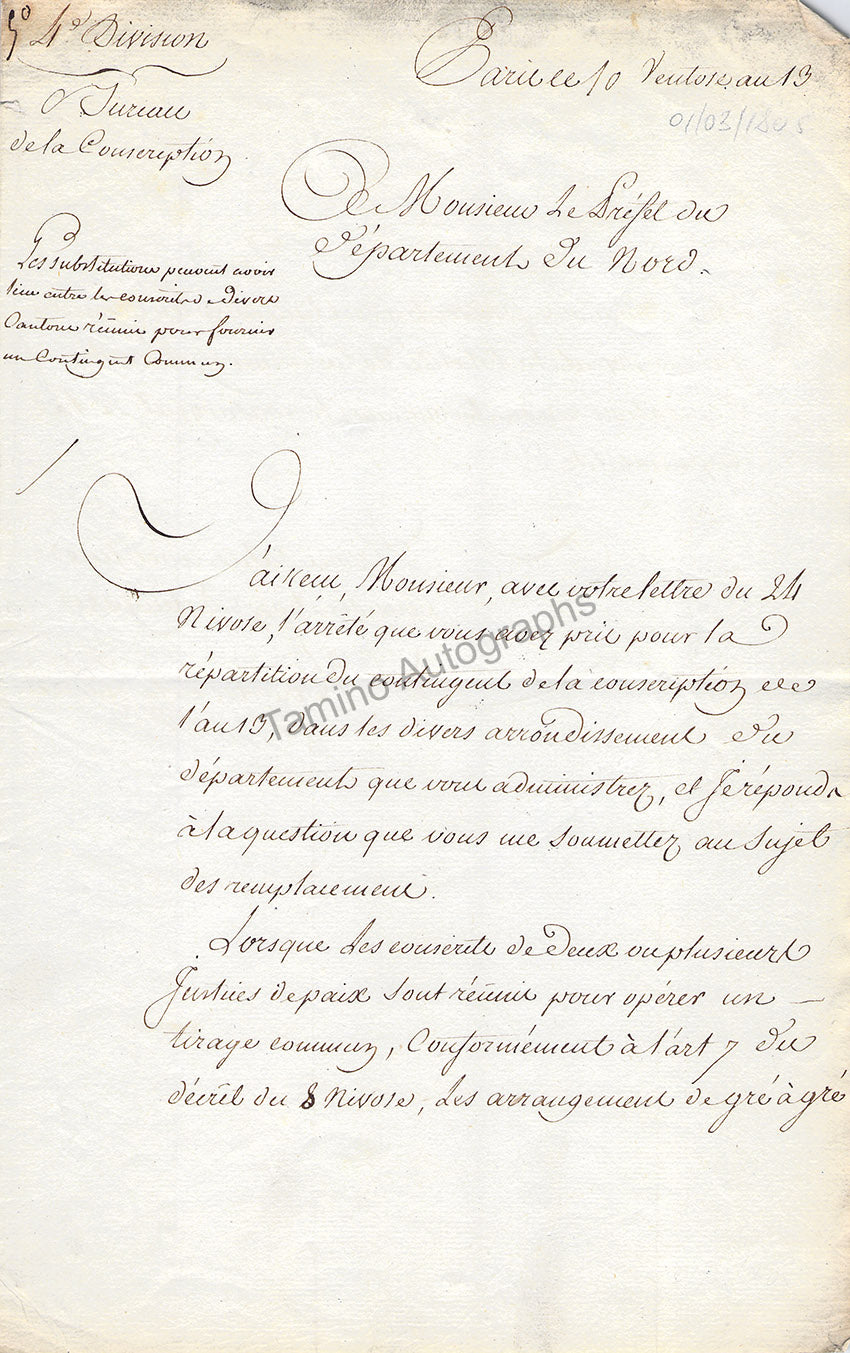 5° 4e Division
Bureau
de la Conscription
Paris le 10 Ventose an 13
01/03/1805
A Monsieur Le Préfet du
Département du Nord.
Les substitutions peuvent avoir
lieu entre les conscrits de divers
Cantons réunis pour fournir
un Contingent Commun.
J'ai reçu, Monsieur, avec votre lettre du 24
Nivose, l'arrêté que vous avez pris pour la
répartition du contingent de la conscription de
l'an 13, dans les divers arrondissements du
département que vous administrez, et Je réponds
à la question que vous me soumettez au sujet
des remplacements.
Lorsque Les conscrits de deux ou plusieurs
Justices de paix sont réunis pour opérer un
tirage commun, Conformément à l'art 7 du
décret du 8 Nivose, Les arrangements de gré à gré
Tamino Autographs